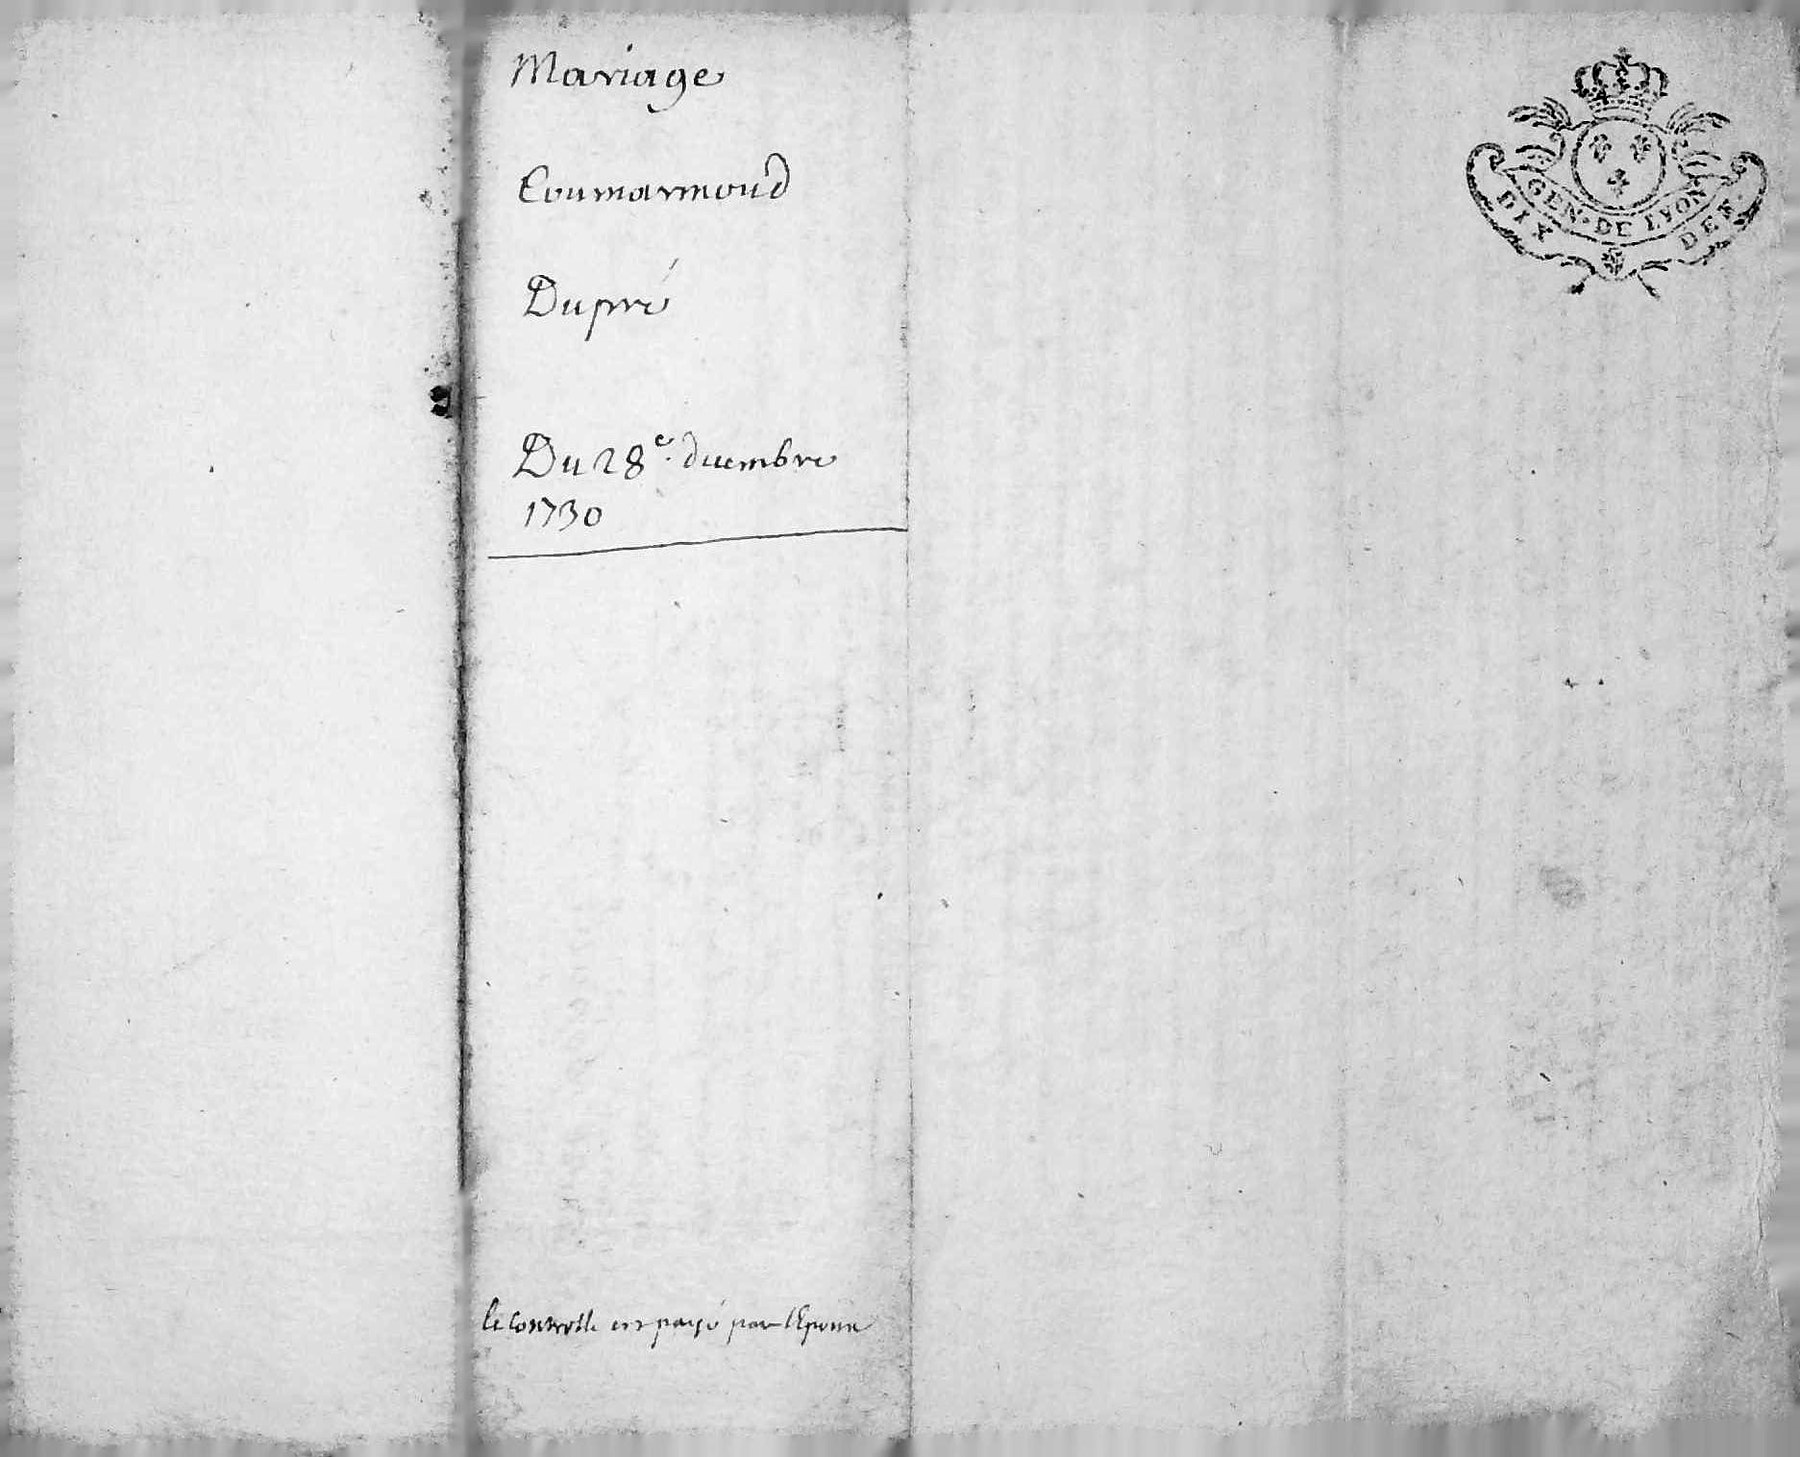 Mariage
Coumarmond
Dupré
Du 28e. decembre
1730
le Controlle est payé par l'Epoux
GEN · DE LYON
DIX DEN.